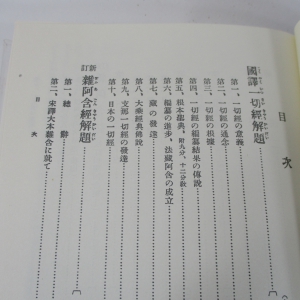 目次
國譯一切經解題
第一、一切經の意義
第二、一切經の通念
第三、一切經の根據
第四、一切經の編纂結果の傳說
第五、根本聖典、附九分、十二分敎
第六、編纂の進步、法藏阿含の成立
第七、藏の發達
第八、大乘經典傳說
第九、支那一切經の發達
第十、日本の一切經
新訂 雜阿含經解題
第一、總說
第二、宋譯大本雜含に就て
目次